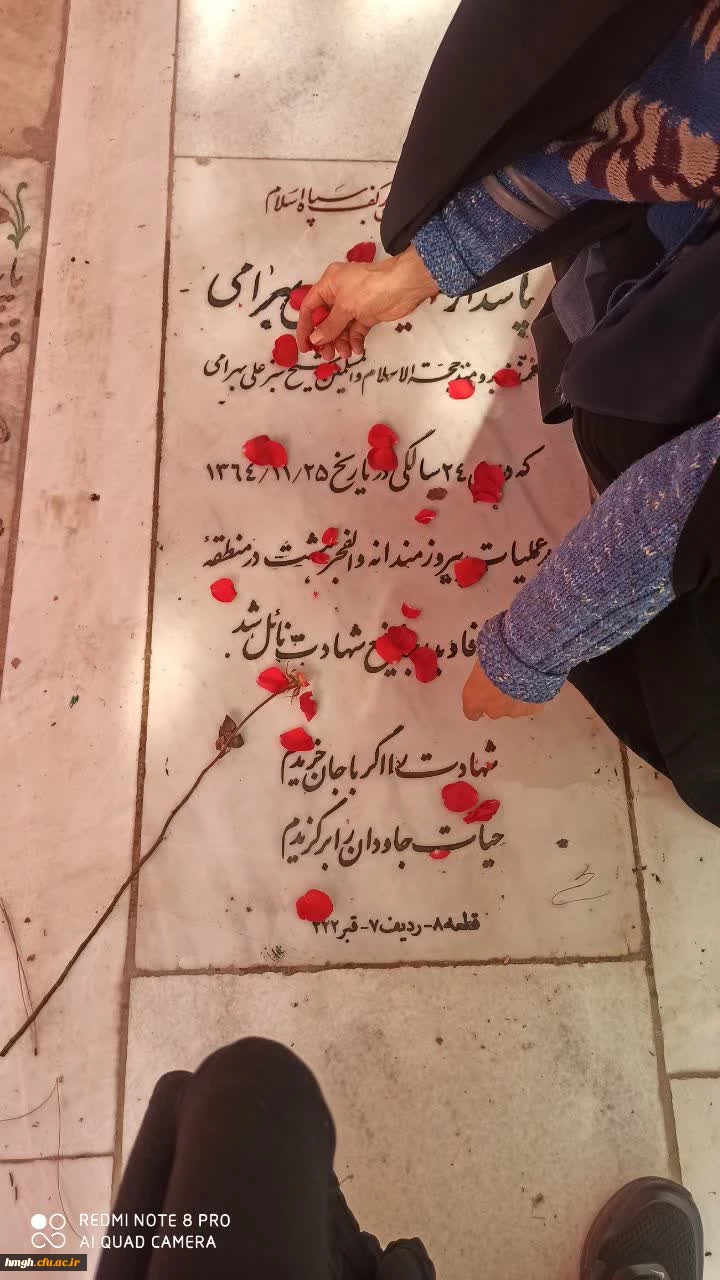 کف سپاه اسلام
پاسدار بهرامی
فرزند برومند حجة الاسلام والمسلمین شیخ سبزعلی بهرامی
که در سن ۲۴ سالگی در تاریخ ۱۳۶۴/۱۱/۲۵
در عملیات پیروزمندانه والفجر هشت در منطقهٔ
فاو به شهادت نائل شد.
شهادت را اگر با جان خریدیم
حیات جاودان را برگزیدیم
قطعه ۸ - ردیف ۷ - قبر ۲۲۲
REDMI NOTE 8 PRO
AI QUAD CAMERA
hmgh.cfu.ac.ir